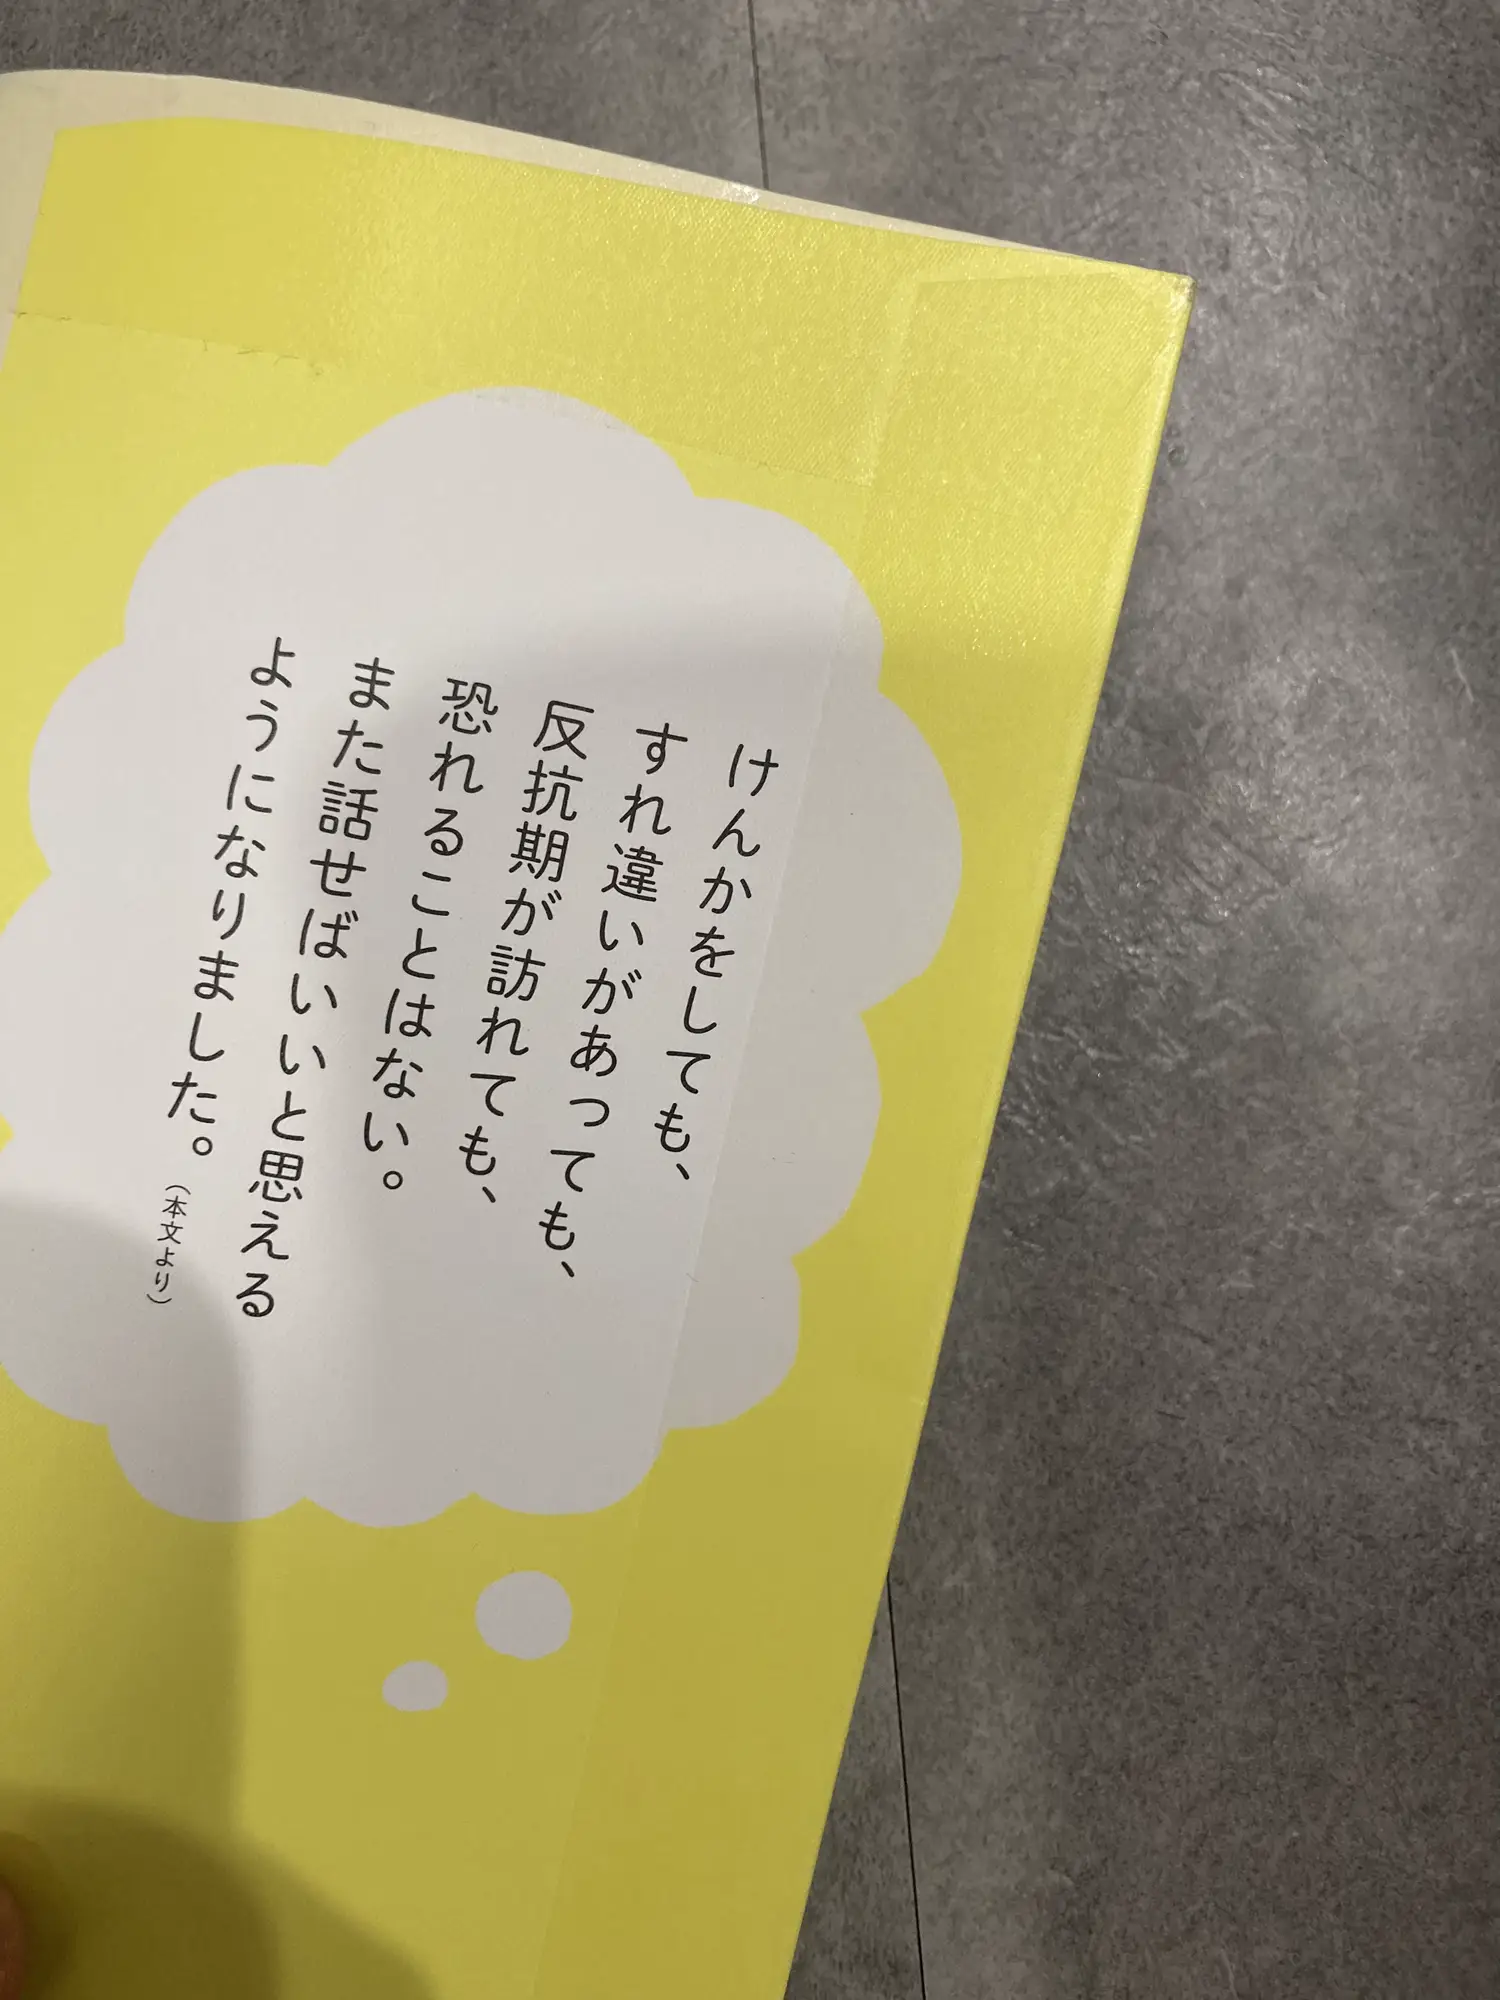 けんかをしても、
すれ違いがあっても、
反抗期が訪れても、
恐れることはない。
また話せばいいと思える
ようになりました。
（本文より）